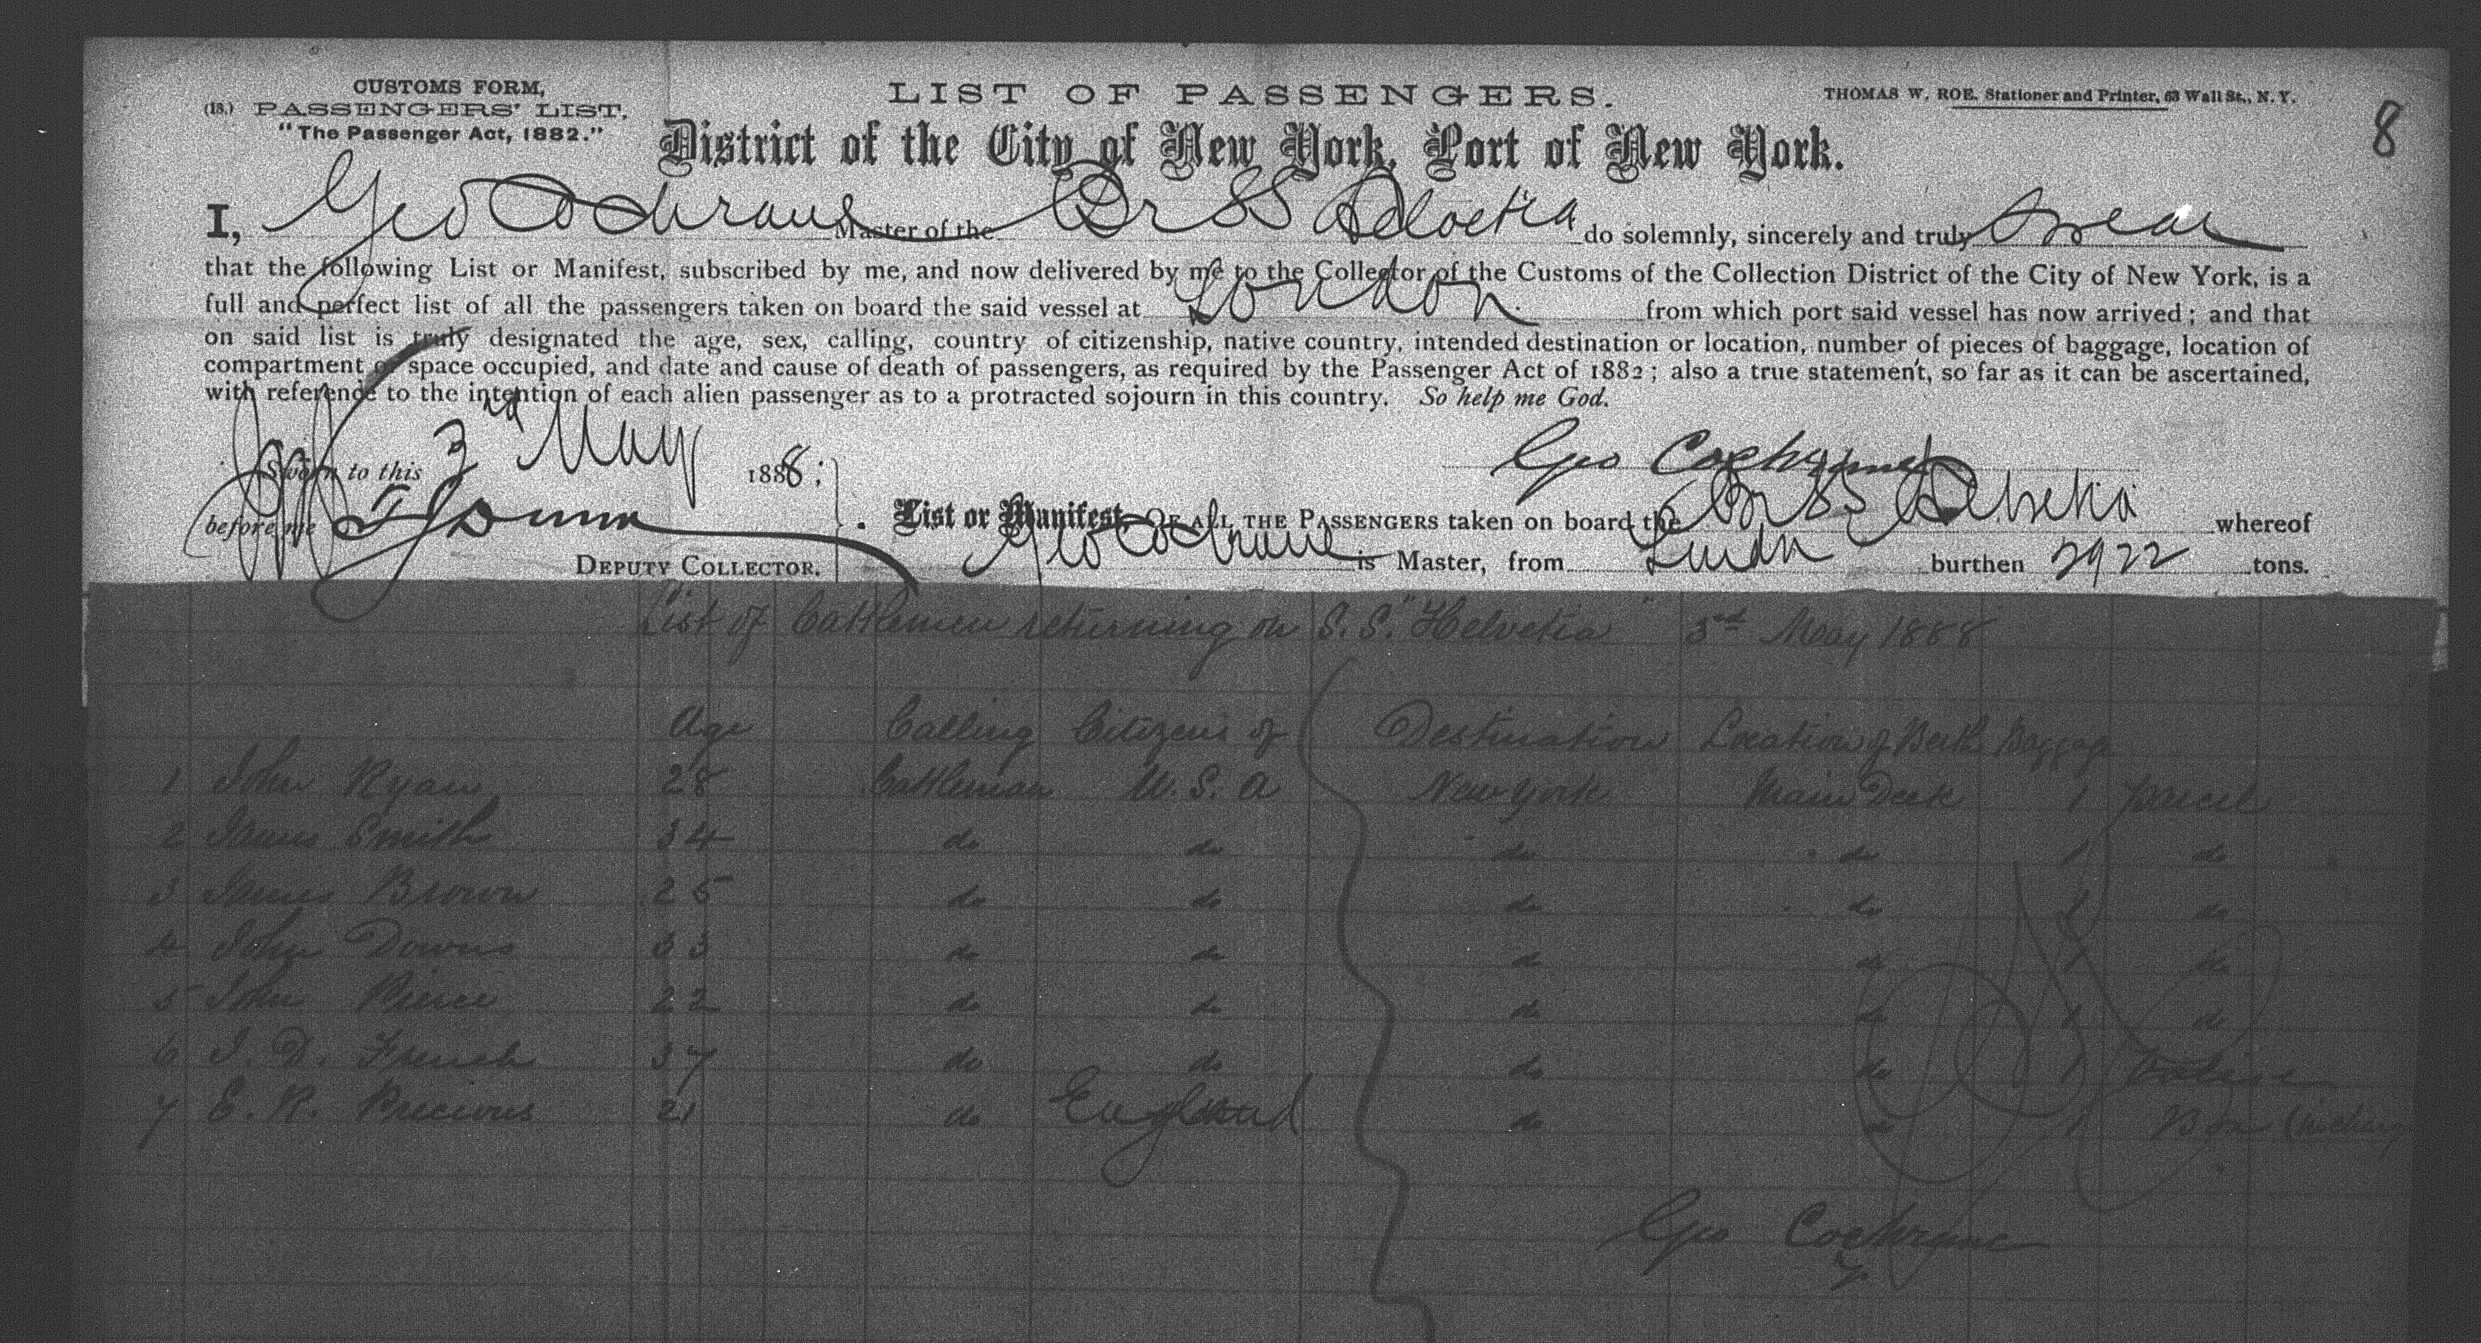 CUSTOMS FORM,
(18.) PASSENGERS' LIST.
"The Passenger Act, 1882."
LIST OF PASSENGERS.
THOMAS W. ROE, Stationer and Printer, 63 Wall St., N. Y.
8
District of the City of New York, Port of New York.
I, Geo Cochrane Master of the Br SS Helvetia do solemnly, sincerely and truly swear
that the following List or Manifest, subscribed by me, and now delivered by me to the Collector of the Customs of the Collection District of the City of New York, is a
full and perfect list of all the passengers taken on board the said vessel at London from which port said vessel has now arrived; and that
on said list is truly designated the age, sex, calling, country of citizenship, native country, intended destination or location, number of pieces of baggage, location of
compartment or space occupied, and date and cause of death of passengers, as required by the Passenger Act of 1882; also a true statement, so far as it can be ascertained,
with reference to the intention of each alien passenger as to a protracted sojourn in this country. So help me God.
Sworn to this May 1888;
Geo Cochrane
before me
DEPUTY COLLECTOR.
List or Manifest, OF ALL THE PASSENGERS taken on board the Br SS Helvetia whereof
Geo Cochrane is Master, from London burthen 2922 tons.
List of Cattlemen returning on S.S. "Helvetia" 3rd May 1888
Age Calling Citizens of Destination Location of Berth Baggage
1 John Ryan 28 Cattleman U.S.A New York Main Deck 1 parcel
2 James Smith 34 do do do do 1 do
3 James Brown 25 do do do do 1 do
4 John Downs 33 do do do do 1 do
5 John Pierce 22 do do do do 1 do
6 J. D. French 37 do do do do 1 Valise
7 E. R. Precious 21 do England do do 1 Box
Geo Cochrane